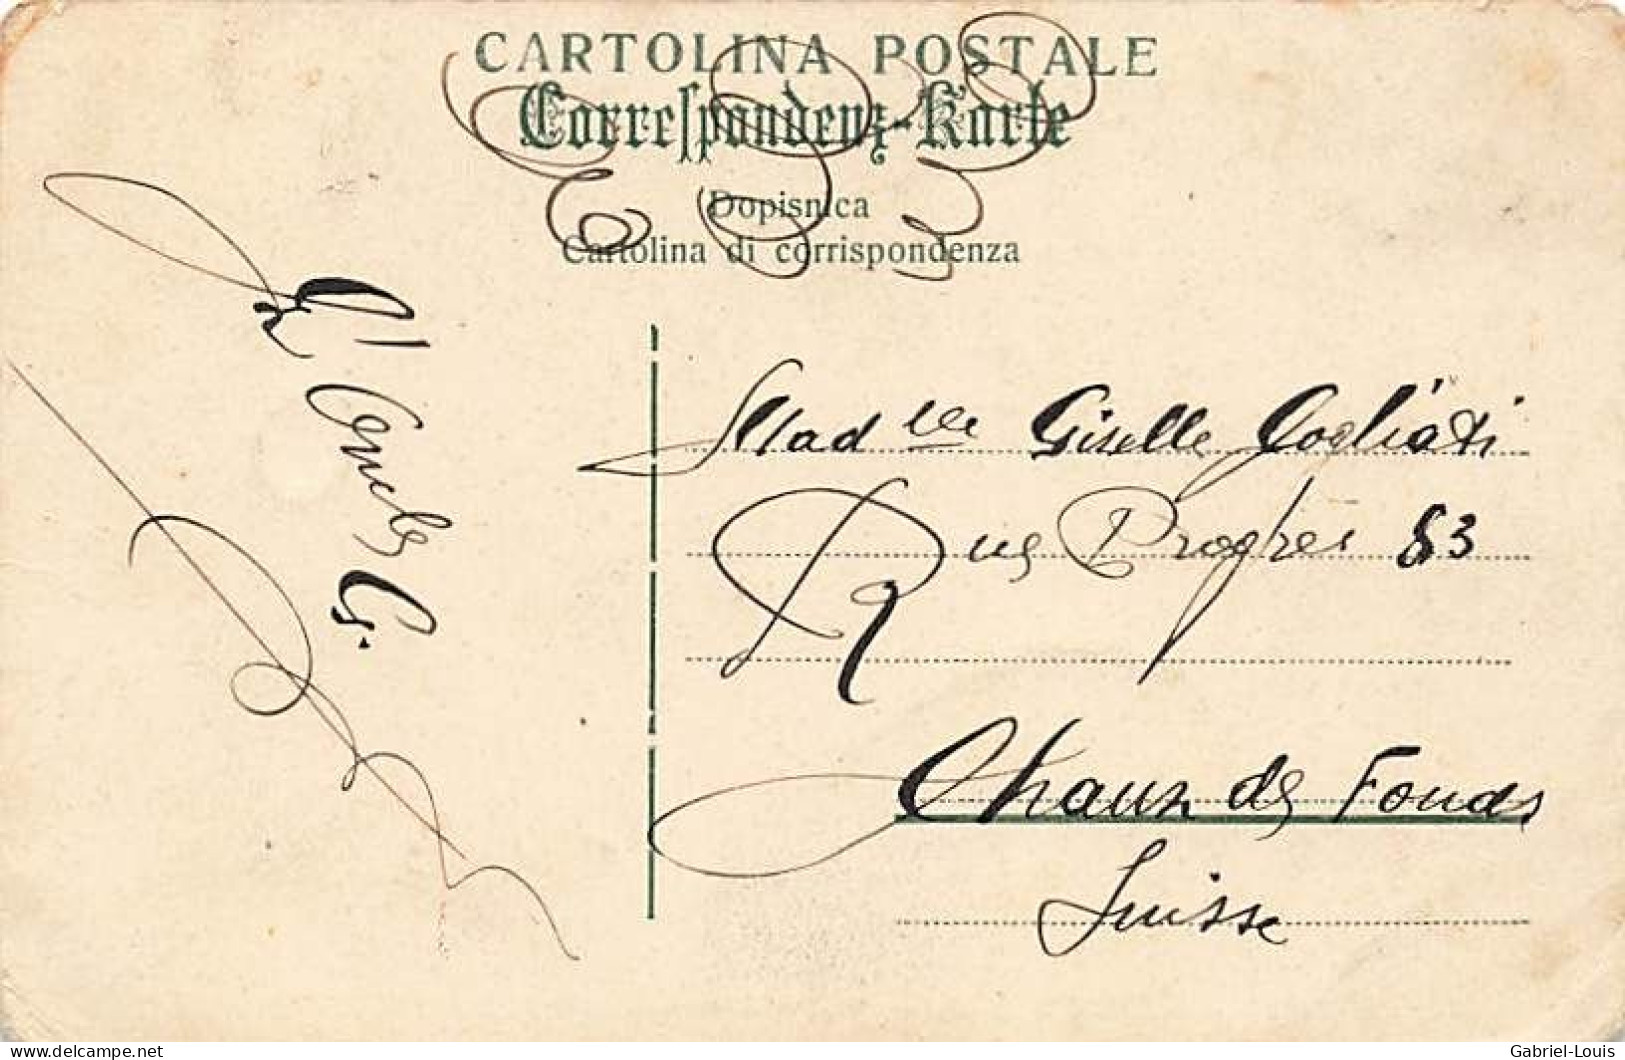 CARTOLINA POSTALE
Correspondenz-Karte
Dopisnica
Cartolina di corrispondenza
Madlle Giselle Cogliati
Rue Progres 83
Chaux de Fonds
Suisse
Gabriel-Louis